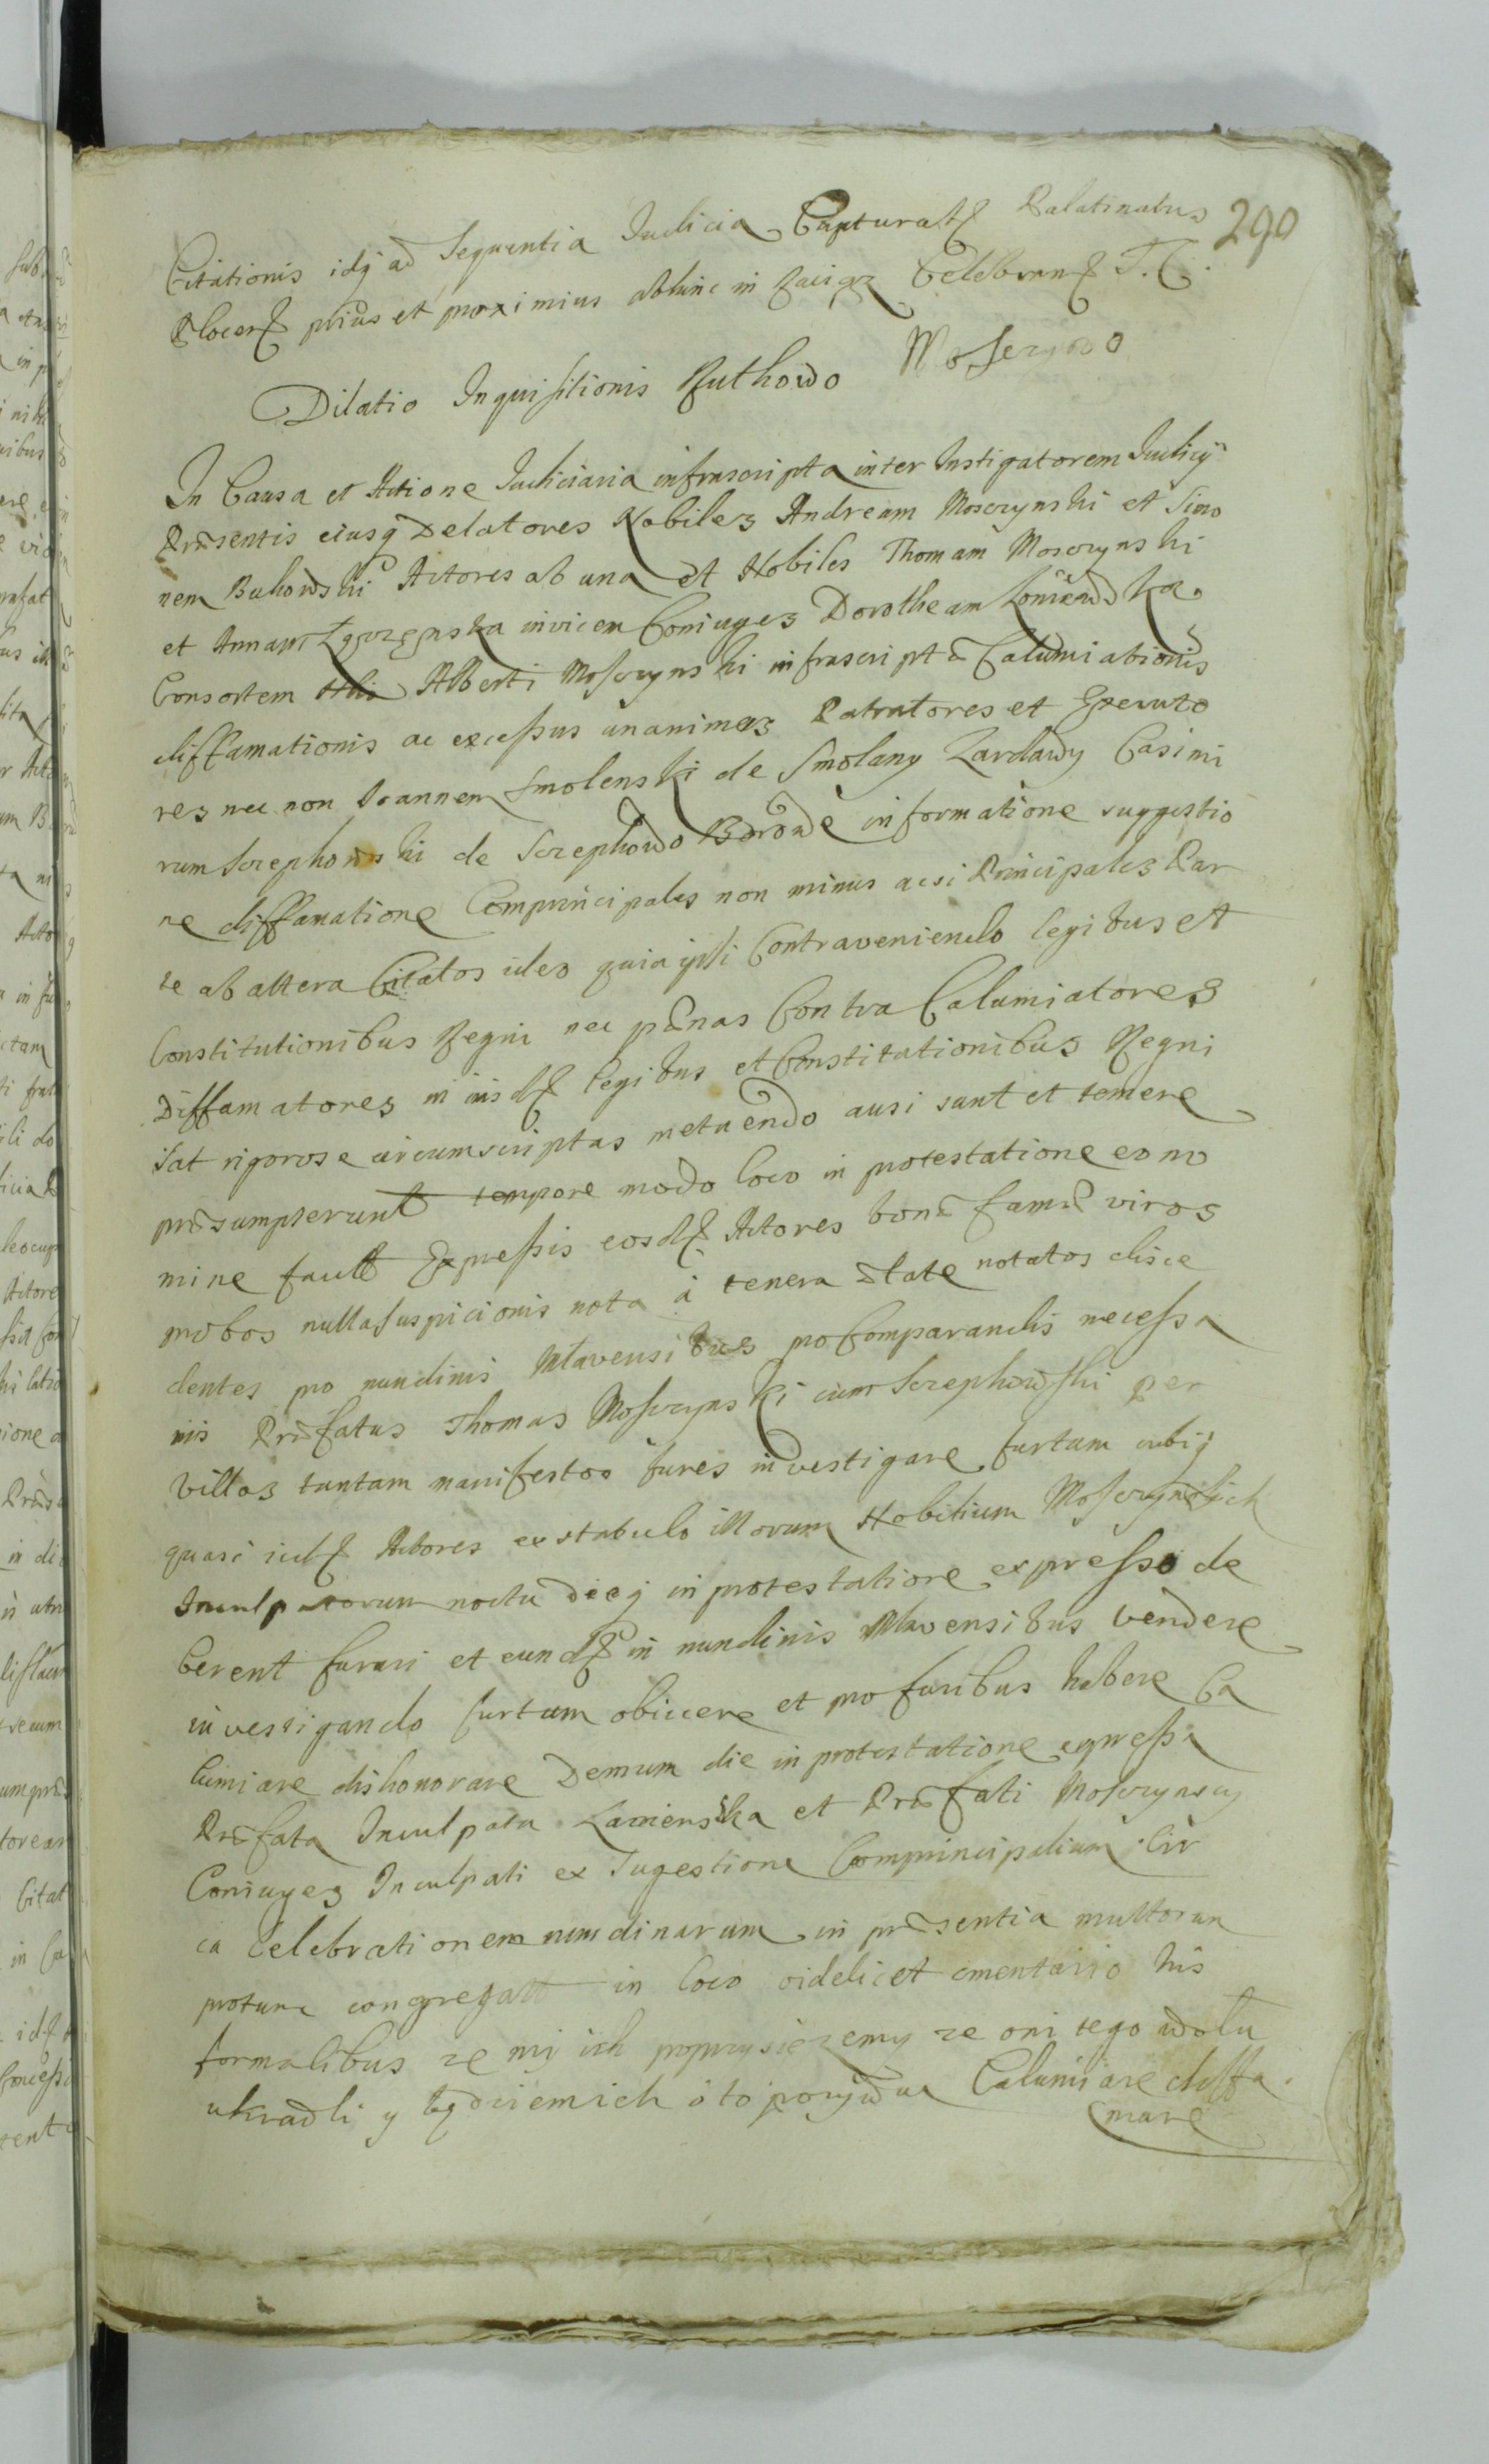 290
Citationis idq ad Sequentia Iudicia Captural Palatinatus
Plocen prius et proximius abhinc in Raciąz Celebran T. C.
Dilatio Inquisitionis Ruthowo Mosczyno
In Causa et Actione Iudiciaria infrascripta inter Instigatorem Iudicij
Præsentis eiusq Delatores Nobiles Andream Mosczynski et Simo
nem Rukowski Actores ab una et Nobiles Thomam Mosczynski
et Annam invicem Coniuges Dorotheam
Consortem Alberti Mosczynski infrascriptæ Calumiationis
diffamationis ac excessus unanimes Patratores et Executo
res nec non Ioannem Smolenski de Smolany Zardawy Casimi
rum Srzephowski de Srzephowo informatione suggestio
ne diffamatione Comprincipales non minus acsi Principales Par
te ab altera Citatos ideo quia ipsi Contraveniendo legibus et
Constitutionibus Regni nec pænas Contra Calumiatores
Diffamatores in iisd legibus et Constitutionibus Regni
sat rigorose circumscriptas metuendo ausi sunt et temere
præsumpserunt tempore modo loco in protestatione eo no
mine fact Expressis eosd Actores bonæ famæ viros
probos nulla suspicionis nota á tenera ætate notatos disce
dentes pro nundinis Mlavensibus pro Comparandis necessa
riis Præfatus Thomas Mosczynski cum Srzephowski per
Villas tantam manifestos fures investigare furtum
quasi iid Actores ex stabulo illorum Nobilium Mosczynskich
Inculpatorum noctu dieq in protestatione expresso de
berent furari et eund in nundinis Mlavensibus vendere
investigando furtum obiicere et pro furibus habere Ca
lumiare dishonorare Demum die in protestatione expressa
Præfata Inculpata et Præfati Mosczynscy
Coniuges Inculpati ex Sugestione Comprincipalium Cir
ca Celebrationem nundinarum in præsentia multorum
protunc congregatt in loco videlicet cmentario his
formalibus ze mi ich poprzysieżemy ze oni tego wołu
ukradli y będziemich o to Calumiare diffa
mare